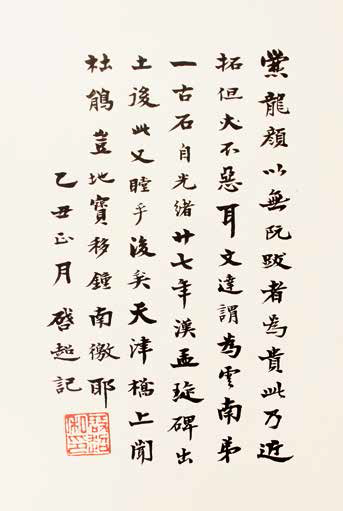 爨龍顏以無阮跋者為貴此乃近
拓但尤不惡耳文達謂為雲南弟
一古石自光緒廿七年漢孟琁碑出
土後此又瞠乎後矣天津橋上聞
杜鵑豈地寶移鍾南徼耶
乙丑正月啓超記